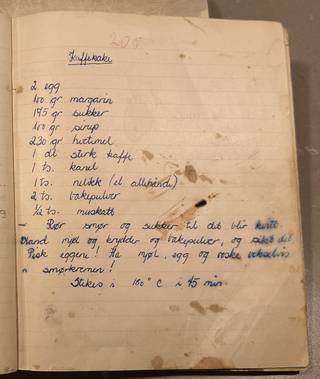 205
Kaffekake
2 egg
100 gr margarin
175 gr sukker
100 gr sirup
230 gr hvetmel
1 dl sterk kaffe
1 ts. kanel
1 ts. nellik (el. allehånde)
2 ts. bakepulver
1/2 ts. muskatt
- Rør smør og sukker til det blir kvitt.
Bland mjøl og krydder og bakepulver, og sikt det
Pisk eggene! Ha mjøl, egg og væske vekselvis
i smørkremen!
Stekes i 160° C i 45 min.